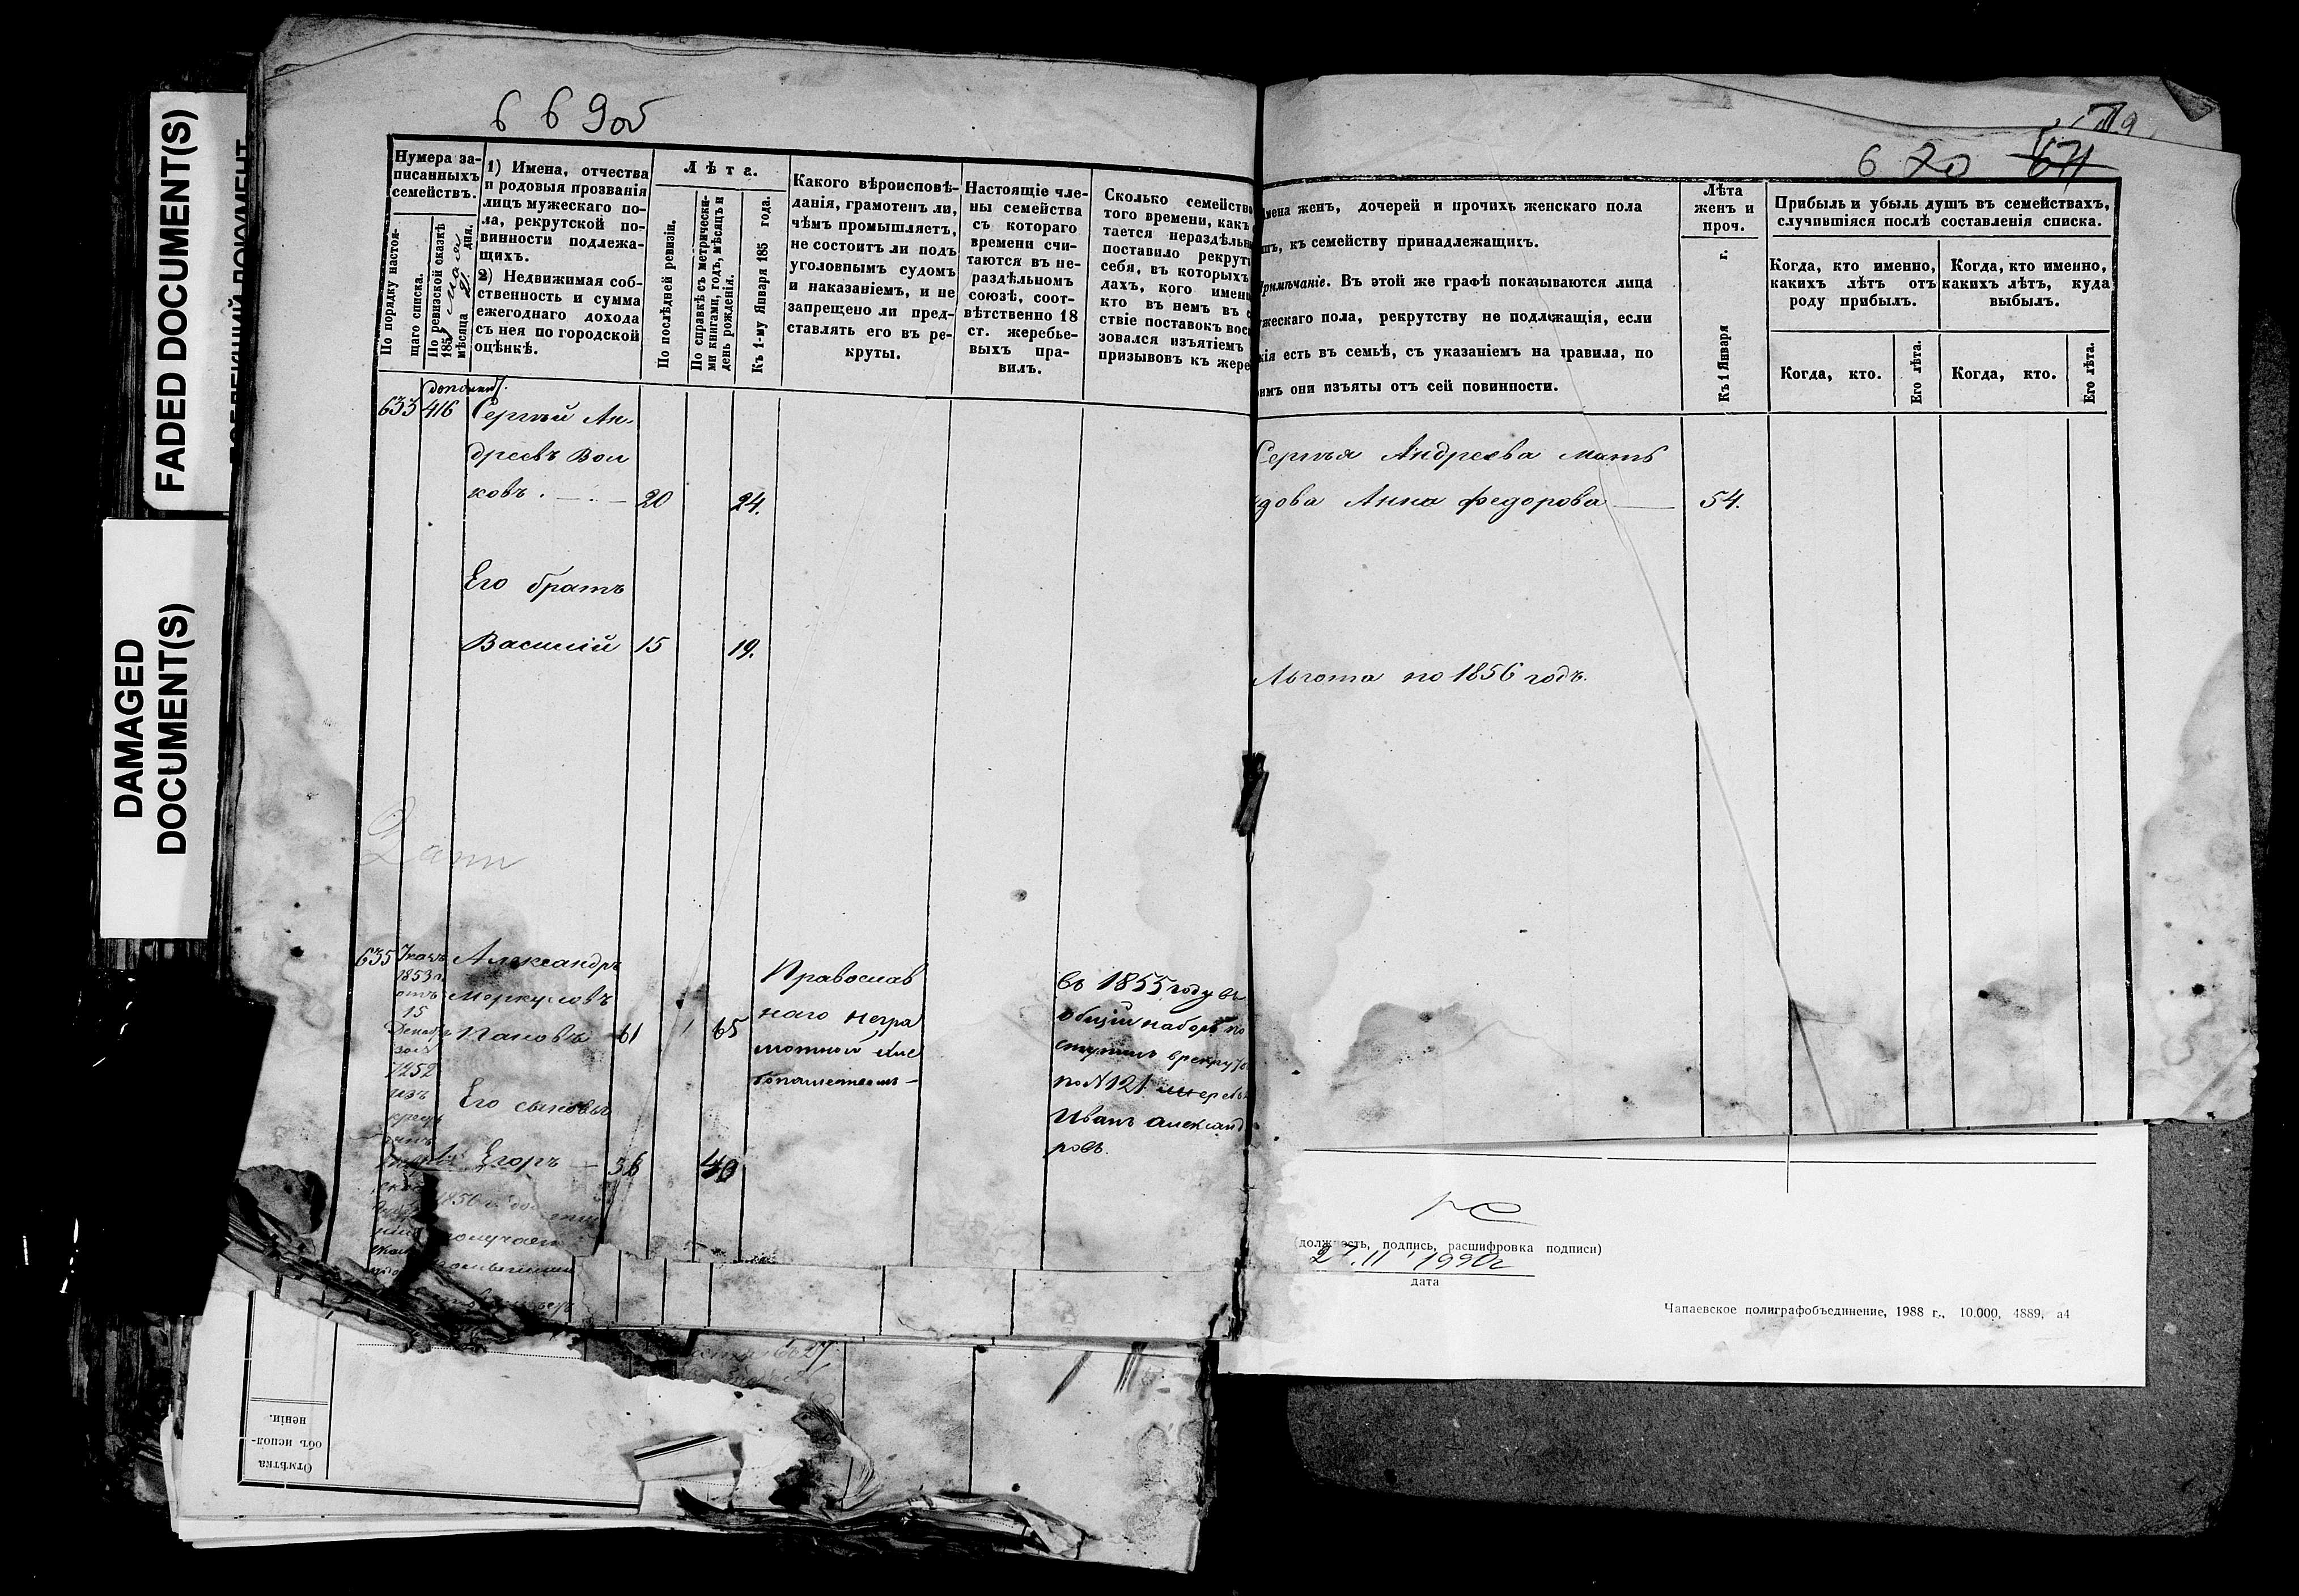 FADED DOCUMENT(S)
DAMAGED
DOCUMENT(S)
669об
Нумера за-
писанныхъ
семействъ.
По порядку настоя-
щаго списка.
По ревизской сказкѣ
185 мая
мѣсяца 21. дня.
1) Имена, отчества
и родовыя прозванія
лицъ мужескаго по-
ла, рекрутской по-
винности подлежа-
щихъ.
2) Недвижимая соб-
ственность и сумма
ежегоднаго дохода
съ нея по городской
оцѣнкѣ.
Лѣта.
По послѣдней ревизіи.
По справкѣ съ метрически-
ми книгами, годъ, мѣсяцъ и
день рожденія.
Къ 1-му Января 185 года.
Какого вѣроисповѣ-
данія, грамотенъ ли,
чѣмъ промышляетъ,
не состоитъ ли подъ
уголовнымъ судомъ
и наказаніемъ, и не
запрещено ли пред-
ставлять его въ ре-
круты.
Настоящіе чле-
ны семейства
съ котораго
времени счи-
таются въ не-
раздѣльномъ
союзѣ, соот-
вѣтственно 18
ст. жеребье-
выхъ пра-
вилъ.
Сколько семейство
того времени, какъ
тается нераздѣльн
поставило рекрут
себя, въ которыхъ
дахъ, кого имен
кто въ немъ въ
ствіе поставокъ вос
зовался изъятіемъ
призывовъ къ жере
633 416 Сергѣй Ан-
дреевъ Вол
ковъ. 20 24.
Его братъ
Василій 15 19.
635 Указъ Александръ
1853 г.
отъ Меркуловъ
15
Декабря Пановъ 61 65
7252
изъ
Его сыновья
Егоръ 36 40
1856 г.
получает
Православ
наго негра
мотной
въ 1855 году въ
общій наборъ по
ступилъ в рекруты
по № 121
Иванъ Александ
ровъ.
670 671
Имена женъ, дочерей и прочихъ женскаго пола
къ семейству принадлежащихъ.
Примѣчаніе. Въ этой же графѣ показываются лица
жескаго пола, рекрутству не подлежащія, если
кія есть въ семьѣ, съ указаніемъ на правила, по
имъ они изъяты отъ сей повинности.
Лѣта
женъ и
проч.
Къ 1 Января г.
Прибыль и убыль душъ въ семействахъ,
случившіяся послѣ составленія списка.
Когда, кто именно,
какихъ лѣтъ отъ
роду прибылъ.
Когда, кто именно,
какихъ лѣтъ, куда
выбылъ.
Когда, кто.
Его лѣта.
Когда, кто.
Его лѣта.
Сергѣя Андреева мать
вдова Анна Федорова 54.
Льгота по 1856 годъ.
(должность, подпись, расшифровка подписи)
27.11.1990г
дата
Чапаевское полиграфобъединение, 1988 г., 10.000, 4889, а4
Отмѣтка
объ испол-
неніи.